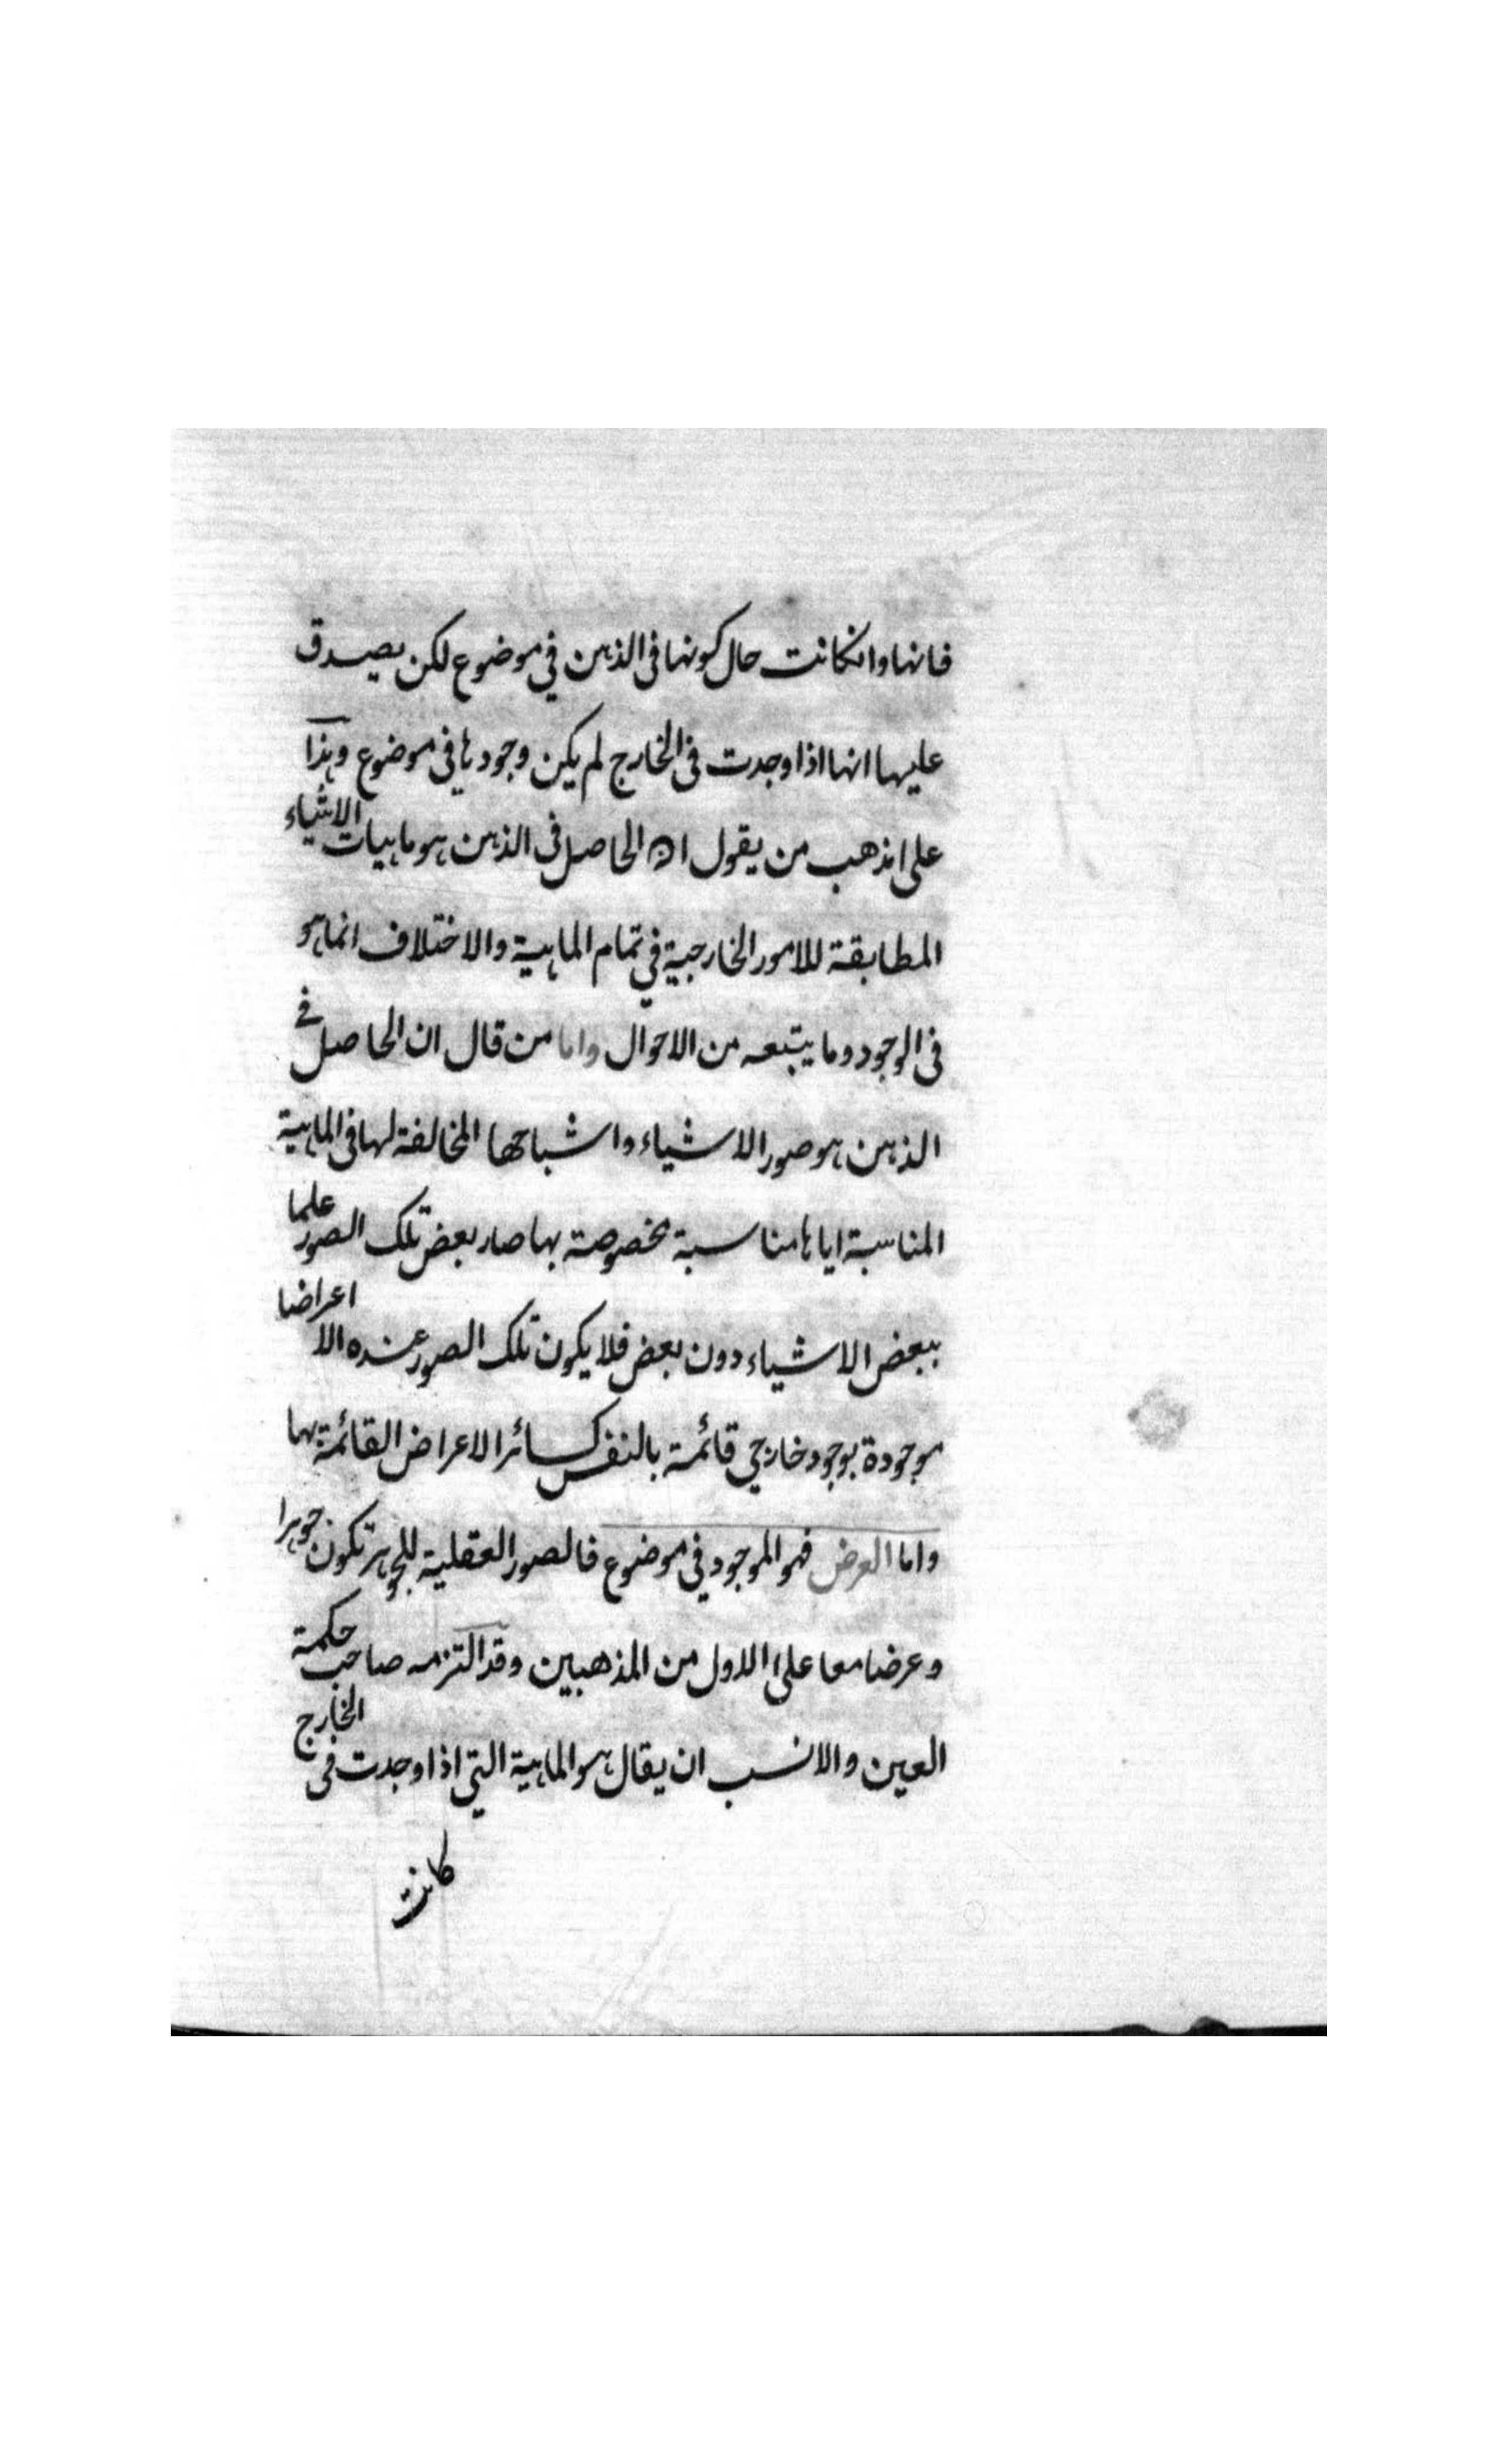 فانها وانكانت حال كونها فى الذهن في موضوع لكن يصدق
عليها انها اذا وجدت فى الخارج لم يكن وجودها في موضوع وهذا
على مذهب من يقول ان الحاصل فى الذهن هو ماهيات الاشياء
المطابقة للامور الخارجية في تمام الماهية والاختلاف انما هو
فى الوجود وما يتبعه من الاحوال واما من قال ان الحاصل في
الذهن هو صور الاشياء واشباحها المخالفة لها فى الماهية
المناسبة اياها مناسبة مخصوصة بها صار بعض تلك الصور علما
ببعض الاشياء دون بعض فلا يكون تلك الصور عنده الا اعراضا
موجودة بوجود خارجي قائمة بالنفس كسائر الاعراض القائمة بها
واما العرض فهو الموجود فى موضوع فالصور العقلية للجوهر تكون جوهرا
وعرضا معا على الاول من المذهبين وقد التزمه صاحب حكمة
العين والانسب ان يقال هو الماهية التي اذا وجدت فى الخارج
كانت